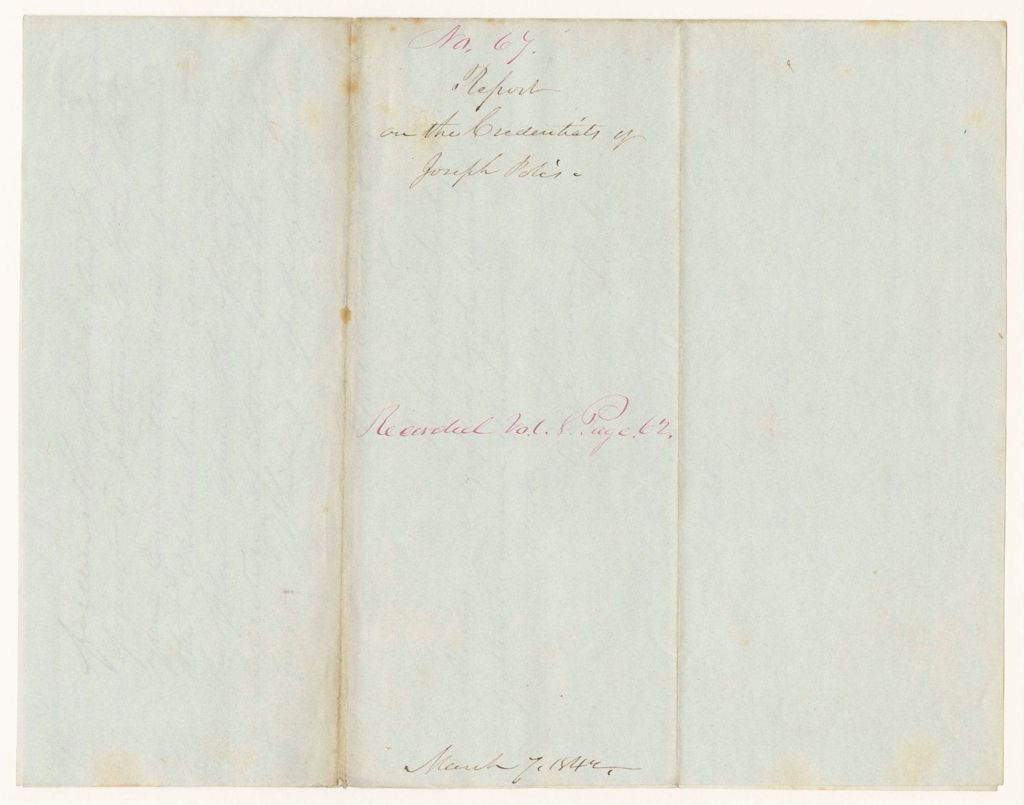 No. 67.
Report
on the Credentials of
Joseph Polis.
Recorded Vol. 8. Page. 62.
March 7. 1842.